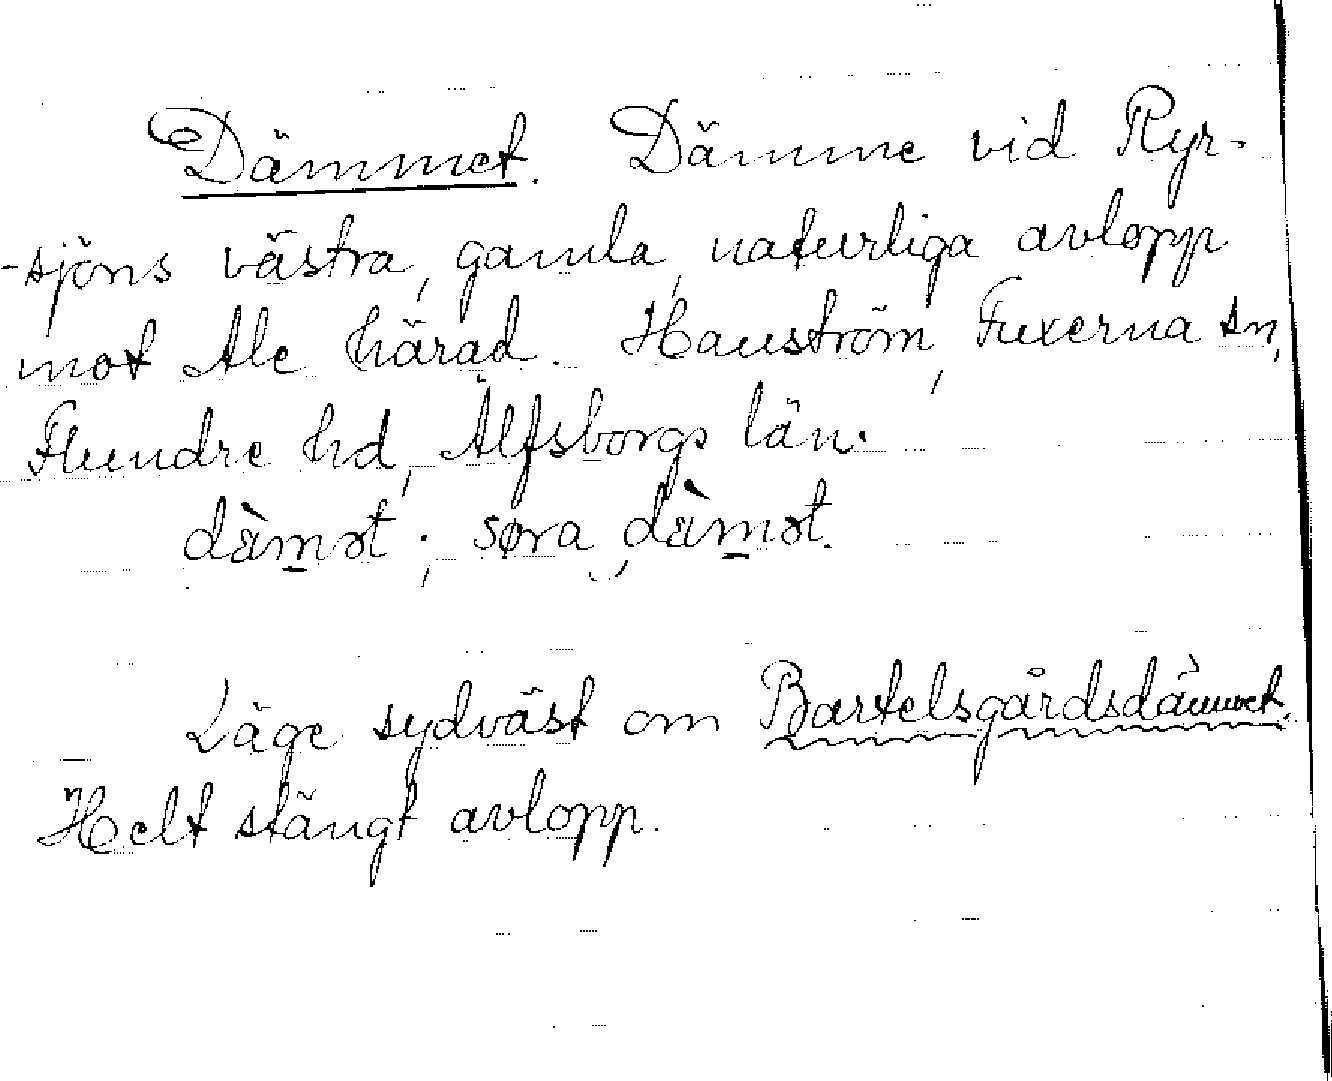 Dämmet. Dämme vid Ryr-
-sjöns västra, gamla, naturliga avlopp
mot Ale härad. Hauström, Fuxerna sn,
Flundre hd, Älfsborgs län.
dàm̲ət ; søra dàm̲ət.
Läge sydväst om Bartelsgårdsdämmet.
Helt stängt avlopp.